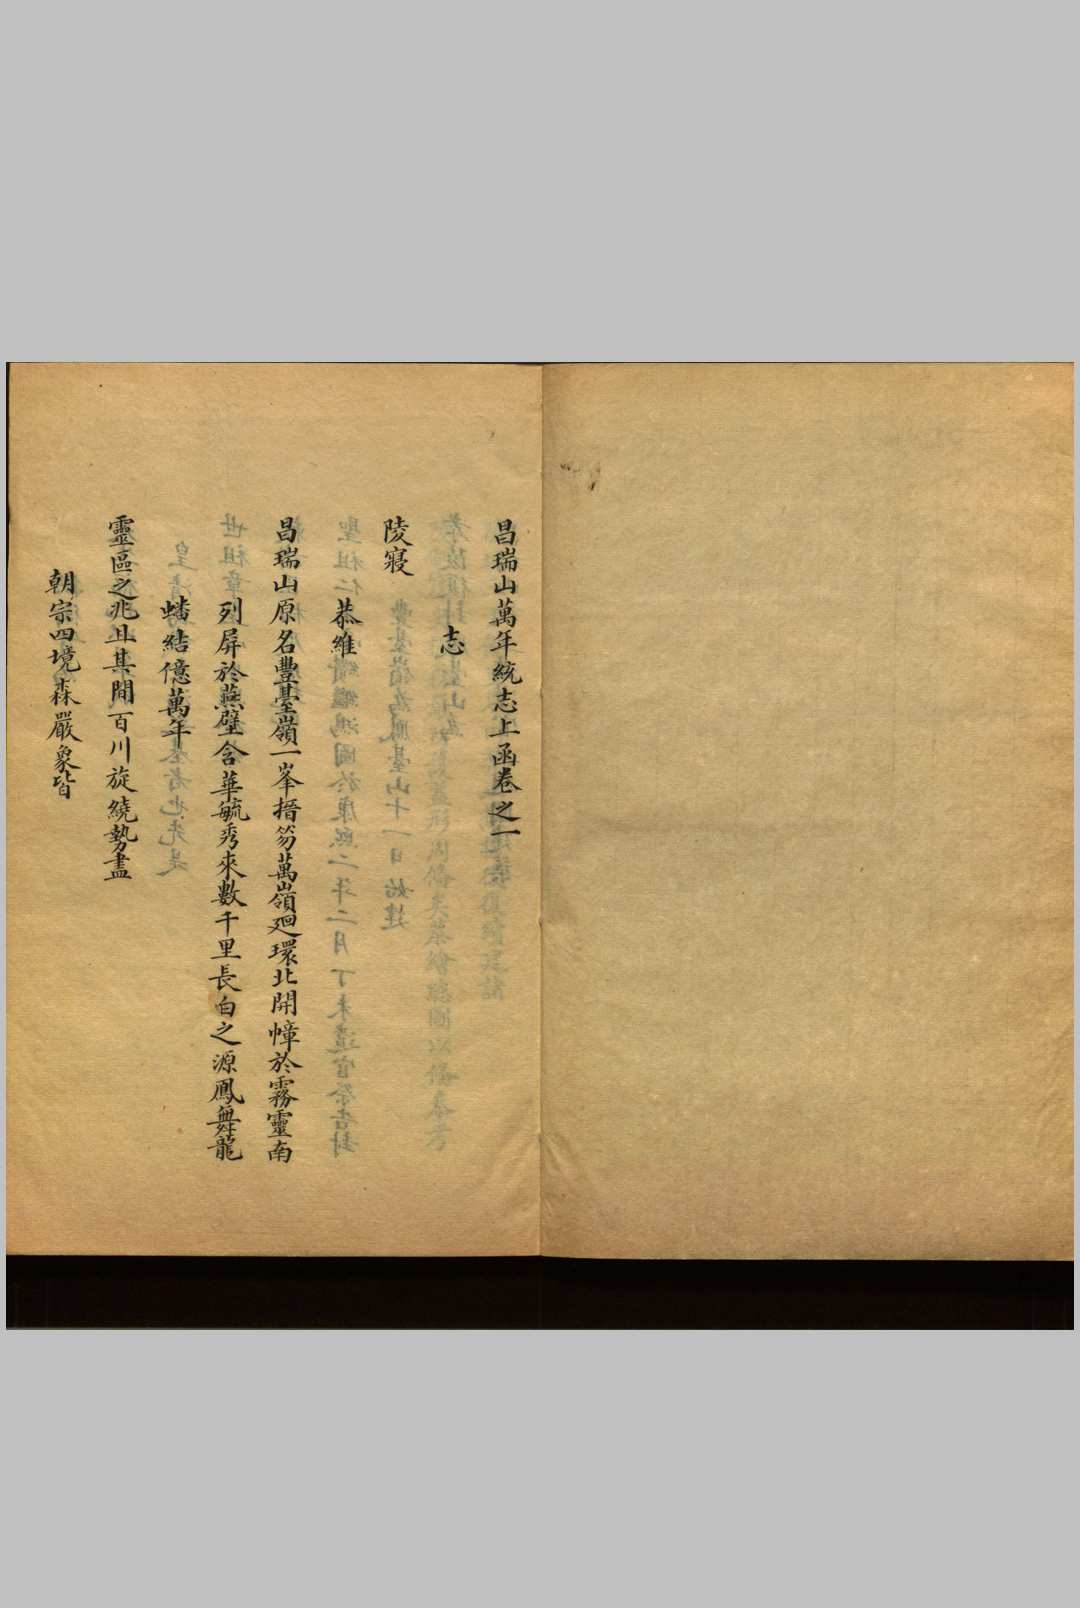 昌瑞山萬年統志上函卷之一
志
陵寢
恭維
昌瑞山原名豐臺嶺一峯搢笏萬嶺廻環北開幛於霧靈南
列屏於燕璧含華毓秀來數千里長白之源鳳舞龍
蟠結億萬年
靈區之兆且其間百川旋繞勢盡
朝宗四境森嚴象皆